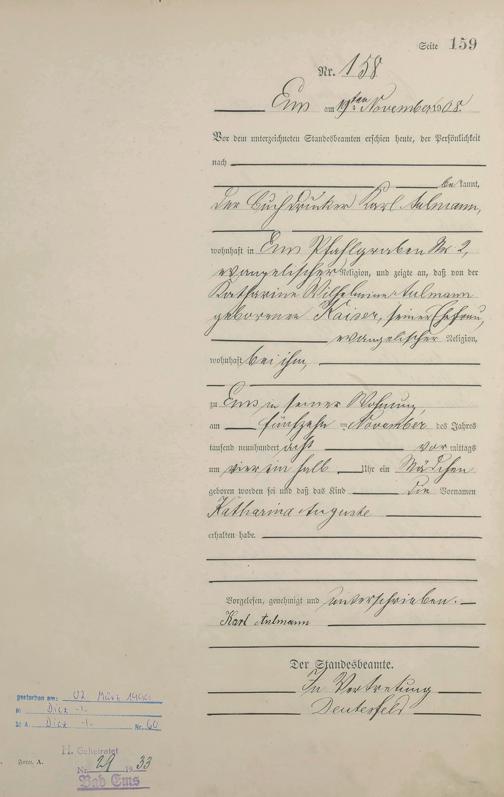 Seite 159
Nr. 158
Ems am 19ten November 1908.
Vor dem unterzeichneten Standesbeamten erschien heute, der Persönlichkeit
nach
be kannt,
der Buchdrucker Karl Aulmann,
wohnhaft in Ems Pfahlgraben Nr 2,
evangelischer Religion, und zeigte an, daß von der
Katharine Wilhelmine Aulmann
geborenen Kaiser, seiner Ehefrau,
evangelischer Religion,
wohnhaft bei ihm,
zu Ems in seiner Wohnung,
am fünfzehn ten November des Jahres
tausend neunhundert acht vor mittags
um vier ein halb Uhr ein Mädchen
geboren worden sei und daß das Kind die Vornamen
Katharina Auguste
erhalten habe.
Vorgelesen, genehmigt und unterschrieben.
Karl Aulmann
Der Standesbeamte.
In Vertretung
gestorben am: 02. März
in Diez
St A. Diez Nr. 60
Form. A.
H. Geheiratet
Nr. 29 1933
Bad Ems